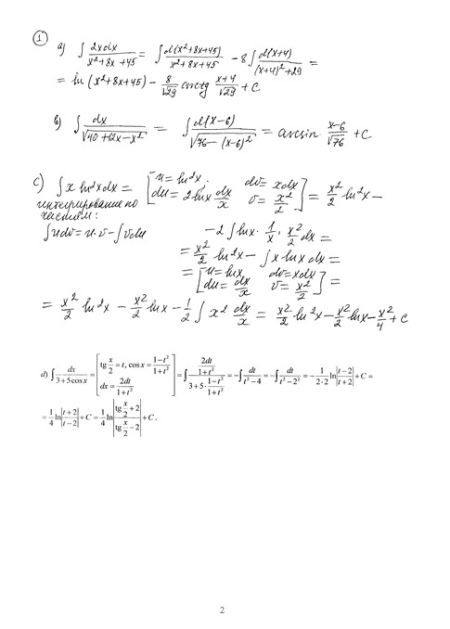 ① a) ∫ 2xdx / (x²+8x+45) = ∫ d(x²+8x+45) / (x²+8x+45) − 8∫ d(x+4) / ((x+4)²+29) =
= ln(x²+8x+45) − 8/√29 arctg (x+4)/√29 + C
b) ∫ dx / √(40+12x−x²) = ∫ d(x−6) / √(76−(x−6)²) = arcsin (x−6)/√76 + C
c) ∫ x ln²x dx = [u=ln²x. dv=xdx du=2lnx dx/x v=x²/2] = x²/2 ln²x −
интегрирование по
частям:
∫udv=u·v−∫vdu
−2∫lnx·1/x·x²/2 dx =
= x²/2 ln²x − ∫x lnx dx =
= [u=lnx dv=xdx du=dx/x v=x²/2] =
= x²/2 ln²x − x²/2 lnx − 1/2 ∫x² dx/x = x²/2 ln²x − x²/2 lnx − x²/4 + C
d) ∫ dx / (3+5cosx) = [tg x/2 = t, cosx = (1−t²)/(1+t²) dx = 2dt/(1+t²)] = ∫ (2dt/(1+t²)) / (3+5·(1−t²)/(1+t²)) = −∫ dt/(t²−4) = −∫ dt/(t²−2²) = −1/(2·2) ln|(t−2)/(t+2)| + C =
= 1/4 ln|(t+2)/(t−2)| + C = 1/4 ln|(tg x/2 + 2)/(tg x/2 − 2)| + C.
2